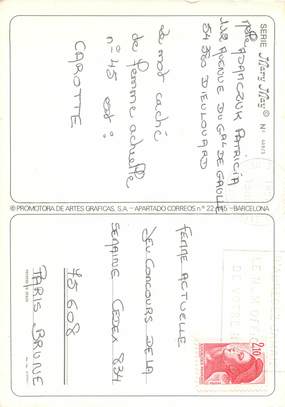 SERIE Mary May © Nº
Melle ADAMCZUK PATRICIA
AVENUE DU GAL DE GAULLE
54 380 DIEULOUARD
Le mot caché
de femme actuelle
n° 45 est :
CAROTTE
® PROMOTORA DE ARTES GRAFICAS, S.A. - APARTADO CORREOS n.º 22.-BARCELONA
2,10
FEMME ACTUELLE
JEU CONCOURS DE LA
SEMAINE CEDEX 834
45 608
PARIS BRUNE